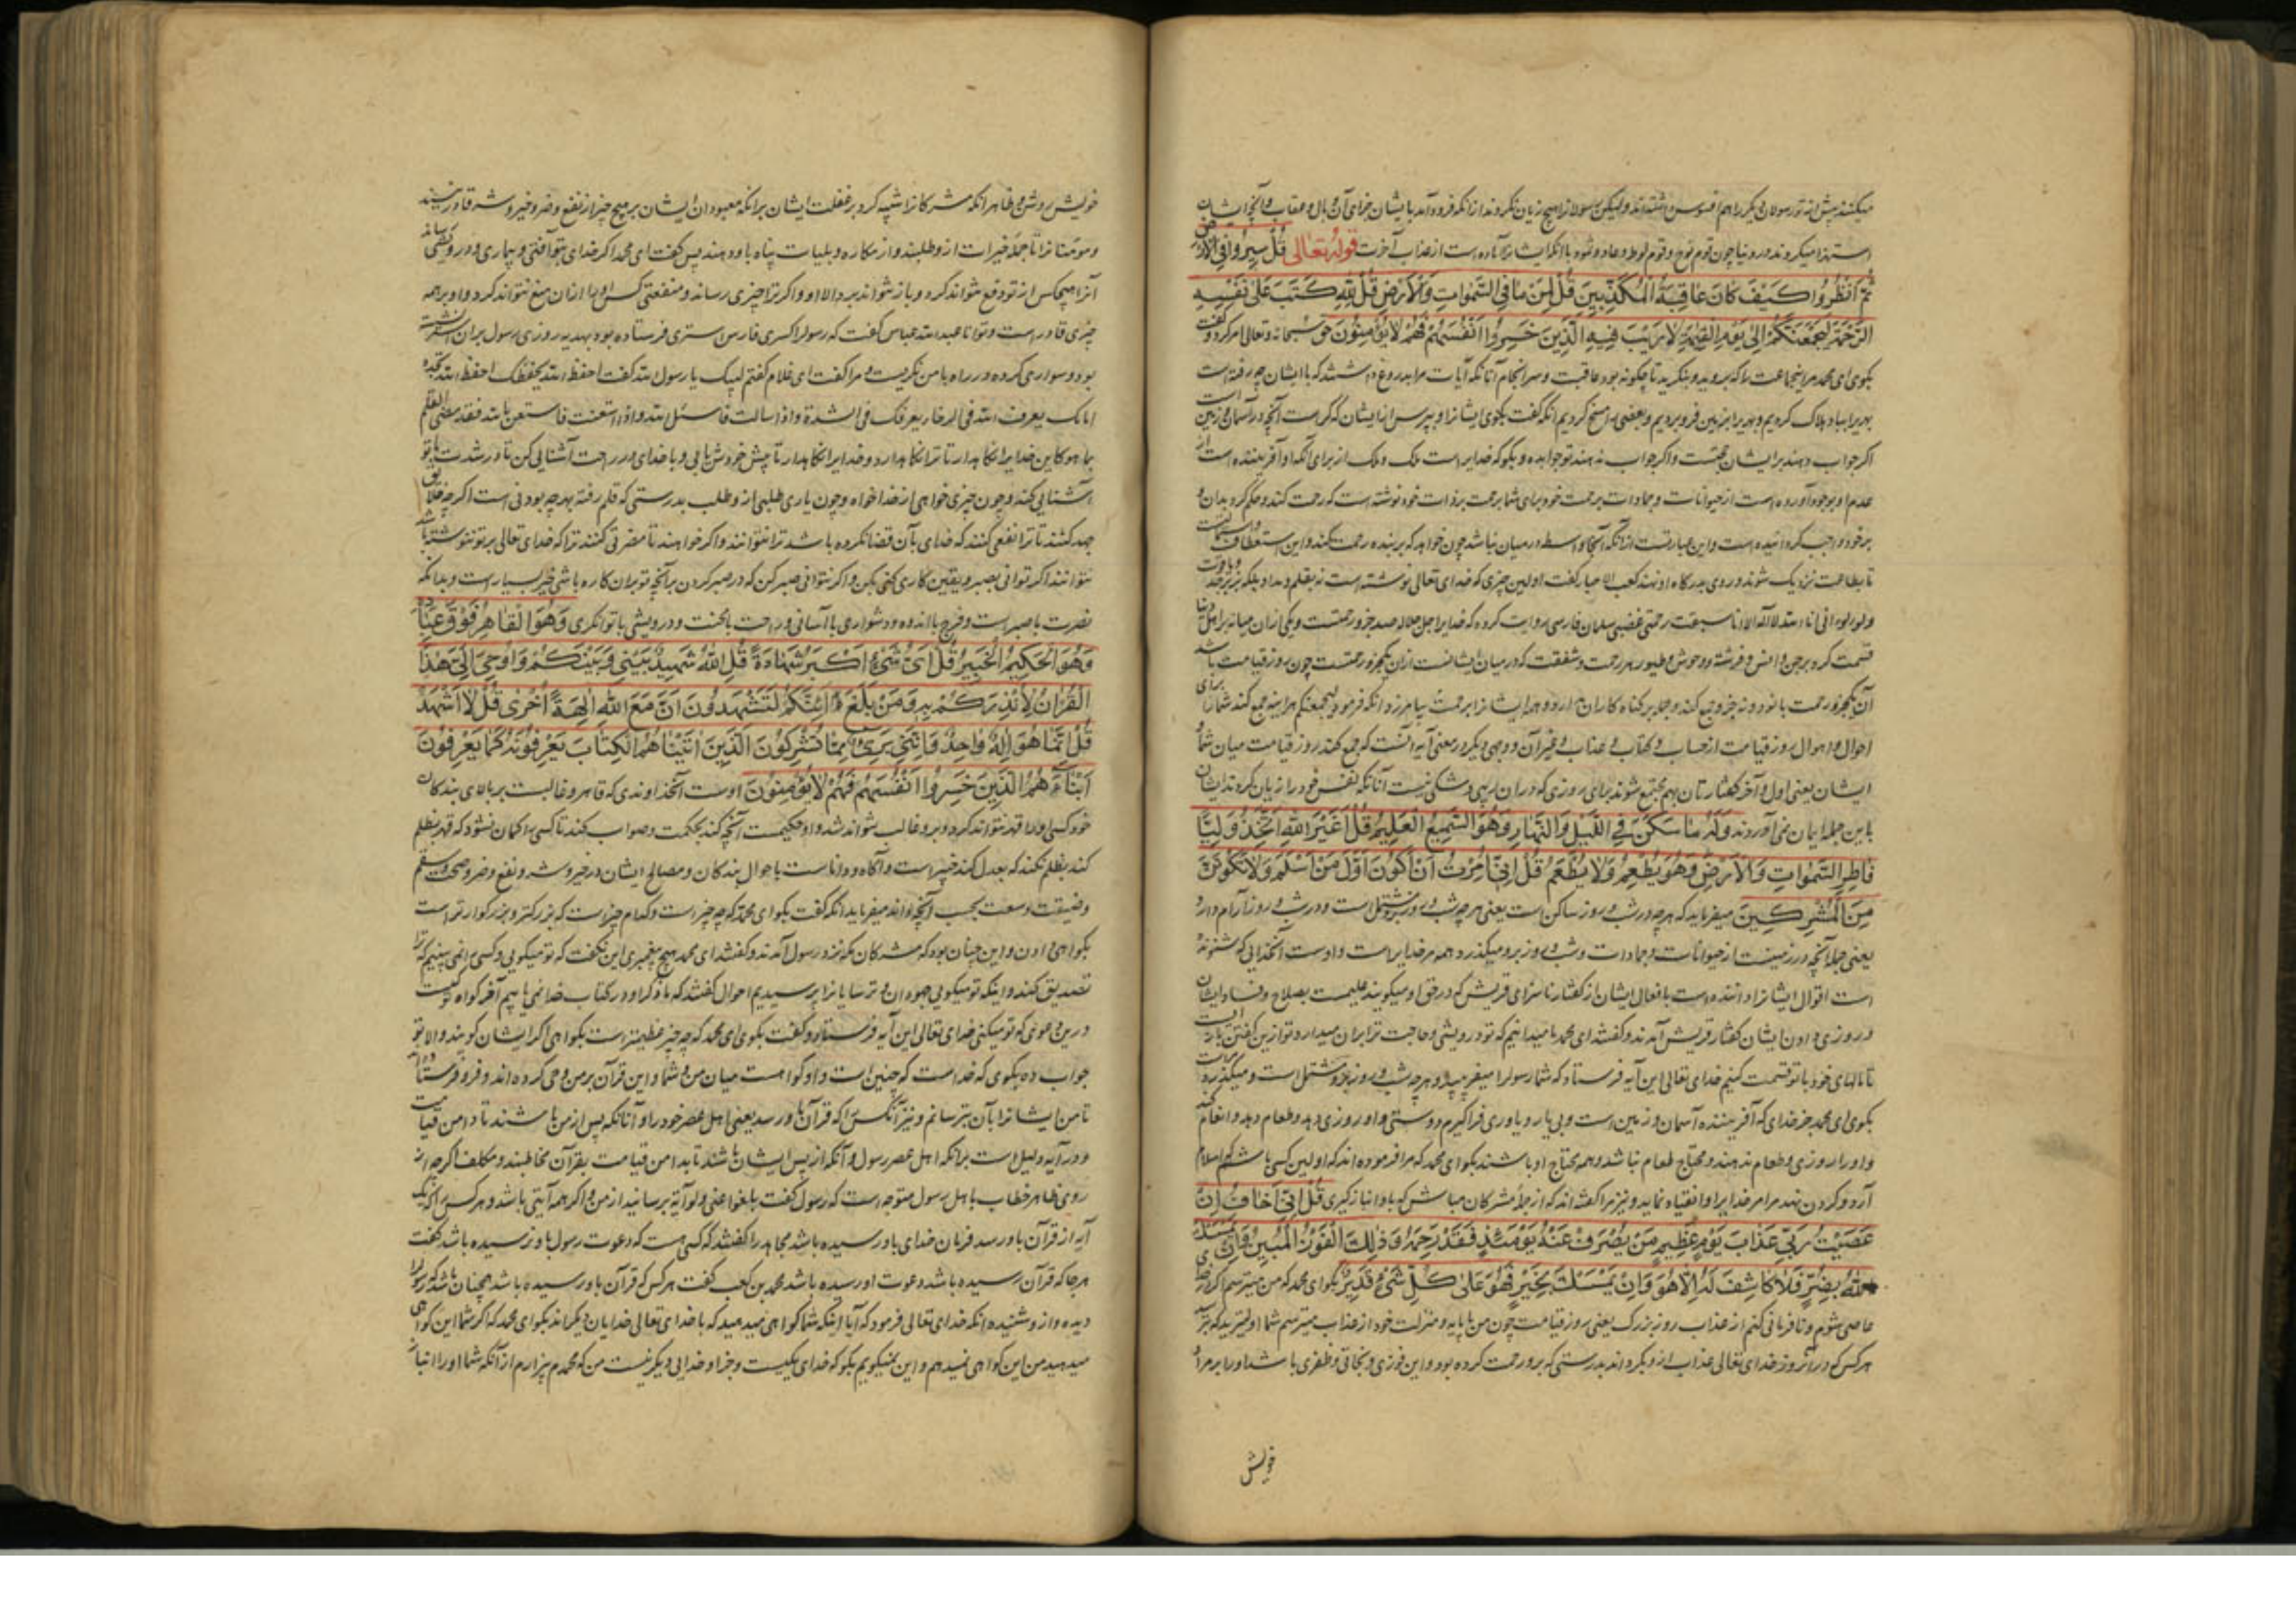 میکنند پیش از تو رسولان دیگر را هم افسوس داشته اند ولیکن رسولانرا هیچ زیان نکردند از انکه فرود آمد بایشان جزای آن وبال و عقاب و آنچه ایشان
استهزا میکردند در دنیا چون قوم نوح و قوم لوط و عاد و ثمود با انکه ایشانرا آماده است از عذاب آخرت قوله تعالی قُلْ سِيرُوا فِي الْأَرْضِ
ثُمَّ انْظُرُوا كَيْفَ كَانَ عَاقِبَةُ الْمُكَذِّبِينَ قُلْ لِمَنْ مَا فِي السَّمٰوَاتِ وَالْأَرْضِ قُلْ لِلّٰهِ كَتَبَ عَلٰى نَفْسِهِ
الرَّحْمَةَ لَيَجْمَعَنَّكُمْ إِلٰى يَوْمِ الْقِيٰمَةِ لَا رَيْبَ فِيهِ الَّذِينَ خَسِرُوا أَنْفُسَهُمْ فَهُمْ لَا يُؤْمِنُونَ حق سبحانه وتعالی امر کرد و گفت
بگوی ای محمد مر اینجماعت را که بروید و بنگرید تا چگونه بود عاقبت و سرانجام آنانکه آیات مرا بدروغ داشتند که با ایشان چه رفته است
بهریرا بباد هلاک کردیم و بهریرا بزمین فرو بردیم و بعضی را مسخ کردیم انکه گفت بگوی ایشانرا و بپرس از ایشان که کراست آنچه در آسمان و زمین است
اگر جواب دهند بر ایشان حجتست و اگر جواب ندهند تو جواب ده و بگو که خدایراست ملک و ملک از برای آنکه او آفریننده است از
عدم او بوجود آورده است از حیوانات و جمادات برحمت خود برای شما برحمت بر ذات خود نوشته است که رحمت کند و حکم کرد بدان و
بر خود واجب گردانیده است و این عبارتست از آنکه آنجا واسطه درمیان نباشد چون خواهد که بر بنده رحمت کند و این استعطاف است
تا بطاعت نزدیک شوند و روی بدرگاه او نهند کعب الاحبار گفت اولین چیزی که خدای تعالی نوشته است نه بقلم و مداد بلکه بزبرجد
ولؤلؤ انی انا الله لا اله الا انا سبقت رحمتی غضبی سلمان فارسی روایت کرده که خدایرا جل جلاله صد جزو رحمتست و یکی از ان میانه اهل دنیا
قسمت کرد بر جن و انس و فرشته و وحوش و طیور هر رحمت و شفقت که درمیان ایشانست از ان یکجزو رحمتست چون روز قیامت باشد
آن یکجزو رحمت با نود و نه جزو جمع کند و جمله بر گناه کاران
احوال و اهوال روز قیامت از حساب و کتاب و عذاب و غیر آن و وجهی دیگر در معنی آیه آنست که جمع کند روز قیامت میان شما و
ایشان یعنی اول و آخر کفتارتان بهم مجتمع شوند برای روزی که در ان ریبی و شکی نیست آنانکه نفس خود را زیان کردند ایشان
باین جمله ایمان نمی آوردند وَلَهُ مَا سَكَنَ فِي اللَّيْلِ وَالنَّهَارِ وَهُوَ السَّمِيعُ الْعَلِيمُ قُلْ أَغَيْرَ اللّٰهِ أَتَّخِذُ وَلِيًّا
فَاطِرِ السَّمٰوَاتِ وَالْأَرْضِ وَهُوَ يُطْعِمُ وَلَا يُطْعَمُ قُلْ إِنِّي أُمِرْتُ أَنْ أَكُونَ أَوَّلَ مَنْ أَسْلَمَ وَلَا تَكُونَنَّ
مِنَ الْمُشْرِكِينَ میفرماید که هرچه در شب و روز ساکن است یعنی هرچه شب و روز برو مشتمل است و در شب و روز آرام دارد
یعنی جمله آنچه در زمینست از حیوانات و جمادات و شب و روز برو میگذرد همه مر خدایراست و اوست آنخدایی که شنونده
است اقوال ایشانرا و داننده است بافعال ایشان از گفتار ناسزای قریش که در حق او میگویند علیمست بصلاح و فساد ایشان
و روزی دادن ایشان کفار قریش آمدند و گفتند ای محمد ما میدانیم که تو درویشی و حاجت ترا بران میدارد تو ازین گفتن باز ایست
تا مالهای خود با تو قسمت کنیم خدای تعالی این آیه فرستاد که شما رسولرا میفریبید و هرچه شب و روز برو مشتمل است و میگذرد مراست
بگوی ای محمد جز خدای که آفریننده آسمان و زمین است وبی یار و یاوری فراگیرم دوستی و او روزی دهد و طعام دهد و انعام کند
و او را روزی و طعام ندهند و محتاج طعام نباشد و همه محتاج او باشند بگو ای محمد که مرا فرموده اند که اولین کسی باشم که اسلام
آرد و گردن نهد مر مر خدایرا و انقیاد نماید و نیز مرا گفته اند که از جمله مشرکان مباش که باو انباز گیری قُلْ إِنِّي أَخَافُ إِنْ
عَصَيْتُ رَبِّي عَذَابَ يَوْمٍ عَظِيمٍ مَنْ يُصْرَفْ عَنْهُ يَوْمَئِذٍ فَقَدْ رَحِمَهُ وَذٰلِكَ الْفَوْزُ الْمُبِينُ وَإِنْ يَمْسَسْكَ
اللّٰهُ بِضُرٍّ فَلَا كَاشِفَ لَهُ إِلَّا هُوَ وَإِنْ يَمْسَسْكَ بِخَيْرٍ فَهُوَ عَلٰى كُلِّ شَيْءٍ قَدِيرٌ بگو ای محمد که من میترسم اگر
عاصی شوم و نافرمانی کنم از عذاب روز بزرگ یعنی روز قیامت چون من با پایه و منزلت خود از عذاب میترسم شما اولیترید که بترسید
هر کس که در آنروز خدای تعالی عذاب از و بگرداند بدرستی که برو رحمت کرده بود و این فوزی و نجاتی و ظفری باشد او را بر مراد
خویش
خویش روشن و ظاهر انکه مشرکانرا تنبیه کرد بر غفلت ایشان برانکه معبودان ایشان بر هیچ چیز از نفع و ضر و خیر و شر قادر نیستند
و مومنانرا تا جمله خیرات از و طلبند و از مکاره و بلیات پناه باو دهند پس گفت ای محمد اگر خدای بتو آفتی و بیماری و درویشی رساند
آنرا هیچکس از تو دفع نتواند کرد و باز نتواند برد الا او و اگر ترا چیزی رساند و منفعتی کس او را از ان منع نتواند کرد و او بر همه
چیزی قادر است و توانا عبد الله عباس گفت که رسولرا کسری فارس ستری فرستاده بود بهدیه روزی رسول بران استر نشسته
بود و سواری کرده در راه با من نگریست و مرا گفت ای غلام گفتم لبیک یا رسول الله گفت احفظ الله یحفظک احفظ الله تجده
امامک یعرف الله فی الرخاء یعرفک فی الشدة و اذا سالت فاسئل الله و اذا استعنت فاستعن بالله فقد مضی القلم
بما هو کاین خدایرا نگاهدار تا ترا نگاهدارد و خدایرا نگاهدار تا پیش خودش یابی و با خدای در راحت آشنایی کن تا در شدت با تو
آشنایی کند و چون چیزی خواهی از خدا خواه و چون یاری طلبی از و طلب بدرستی که قلم رفته بهرچه بودنی است اگر چه خلایق
جهد کنند تا ترا نفعی کنند که خدای بآن قضا نکرده باشد ترا نتوانند و اگر خواهند تا مضرتی کنند ترا که خدای تعالی بر تو ننوشته باشد
نتوانند اگر توانی بصبر و یقین کاری کنی بکن و اگر نتوانی صبر کن که در صبر کردن بر آنچه تو بران کاره باشی خیر بسیار است و بدانکه
نصرت با صبر است و فرج با اندوه و دشواری با آسانی و راحت با محنت و درویشی با توانگری وَهُوَ الْقَاهِرُ فَوْقَ عِبَادِهِ
وَهُوَ الْحَكِيمُ الْخَبِيرُ قُلْ أَيُّ شَيْءٍ أَكْبَرُ شَهَادَةً قُلِ اللّٰهُ شَهِيدٌ بَيْنِي وَبَيْنَكُمْ وَأُوحِيَ إِلَيَّ هٰذَا
الْقُرْآنُ لِأُنْذِرَكُمْ بِهِ وَمَنْ بَلَغَ أَئِنَّكُمْ لَتَشْهَدُونَ أَنَّ مَعَ اللّٰهِ اٰلِهَةً أُخْرٰى قُلْ لَا أَشْهَدُ
قُلْ إِنَّمَا هُوَ إِلٰهٌ وَاحِدٌ وَإِنَّنِي بَرِيءٌ مِمَّا تُشْرِكُونَ الَّذِينَ اٰتَيْنَاهُمُ الْكِتَابَ يَعْرِفُونَهُ كَمَا يَعْرِفُونَ
أَبْنَاءَهُمُ الَّذِينَ خَسِرُوا أَنْفُسَهُمْ فَهُمْ لَا يُؤْمِنُونَ اوست آنخداوندی که قاهر و غالبست بر بالای بندکان
خود کسی او را قهر نتواند کرد و برو غالب نتواند شد و او حکیمست آنچه کند بحکمت و صواب کند تا کسی را گمان نشود که قهر بظلم
کند بظلم نکند که بعدل کند خبیر است و آگاه و داناست باحوال بندکان و مصالح ایشان در خیر و شر و نفع و ضر و صحت و سقم
و ضیقت و سعت بحسب آنچه داند میفرماید انکه گفت بگو ای محمد که چه چیز است و کدام چیز است که بزرکتر و بزرگوارتر است
بگواهی دادن و این چنان بود که مشرکان مکه نزد رسول آمدند و گفتند ای محمد هیچ پیغمبری این نگفت که تو میگویی و کسی را نمی بینیم که ترا
تصدیق کند و اینکه تو میگویی جهودان و ترسایانرا پرسیدیم احوال گفتند که ما ذکر او در کتاب خدا نمی یابیم آخر گواه تو کیست
درین دعوی که تو میکنی خدای تعالی این آیه فرستاد و گفت بگوی ای محمد که چه چیز عظیمتر است بگواهی اگر ایشان گویند و الا تو
جواب ده بگوی که خداست که چنین است و او گواست میان من و شما و این قرآن بر من وحی کرده اند و فرو فرستاده اند
تا من ایشانرا بآن بترسانم و نیز آنکس را که قرآن باو رسد یعنی اهل عصر خود را و آنانکه پس از من باشند تا دامن قیامت
و در آیه دلیل است برانکه اهل عصر رسول و آنکه از پس ایشان باشند تا بدامن قیامت بقرآن مخاطبند و مکلف اگرچه از
روی ظاهر خطاب با اهل رسول متوجه است که رسول گفت بلغوا عنی ولو آیة برسانید از من و اگر همه آیتی باشد و هر کس را که یک
آیه از قرآن باو رسد فرمان خدای باو رسیده باشد مجاهد را گفتند که کسی هست که دعوت رسول باو نرسیده باشد گفت
هرجا که قرآن رسیده باشد دعوت او رسیده باشد محمد بن کعب گفت هر کس که قرآن باو رسیده باشد همچنان باشد که رسول را
دیده و از و شنیده انکه خدای تعالی فرمود که آیا اینکه شما گواهی میدهید که با خدای تعالی خدایان دیگراند بگو ای محمد که اگر شما این گواهی
میدهید من این گواهی نمیدهم و این نمیگویم بگو که خدای یکیست و جز او خدایی دیگر نیست من که محمدم بیزارم از آنکه شما او را انباز